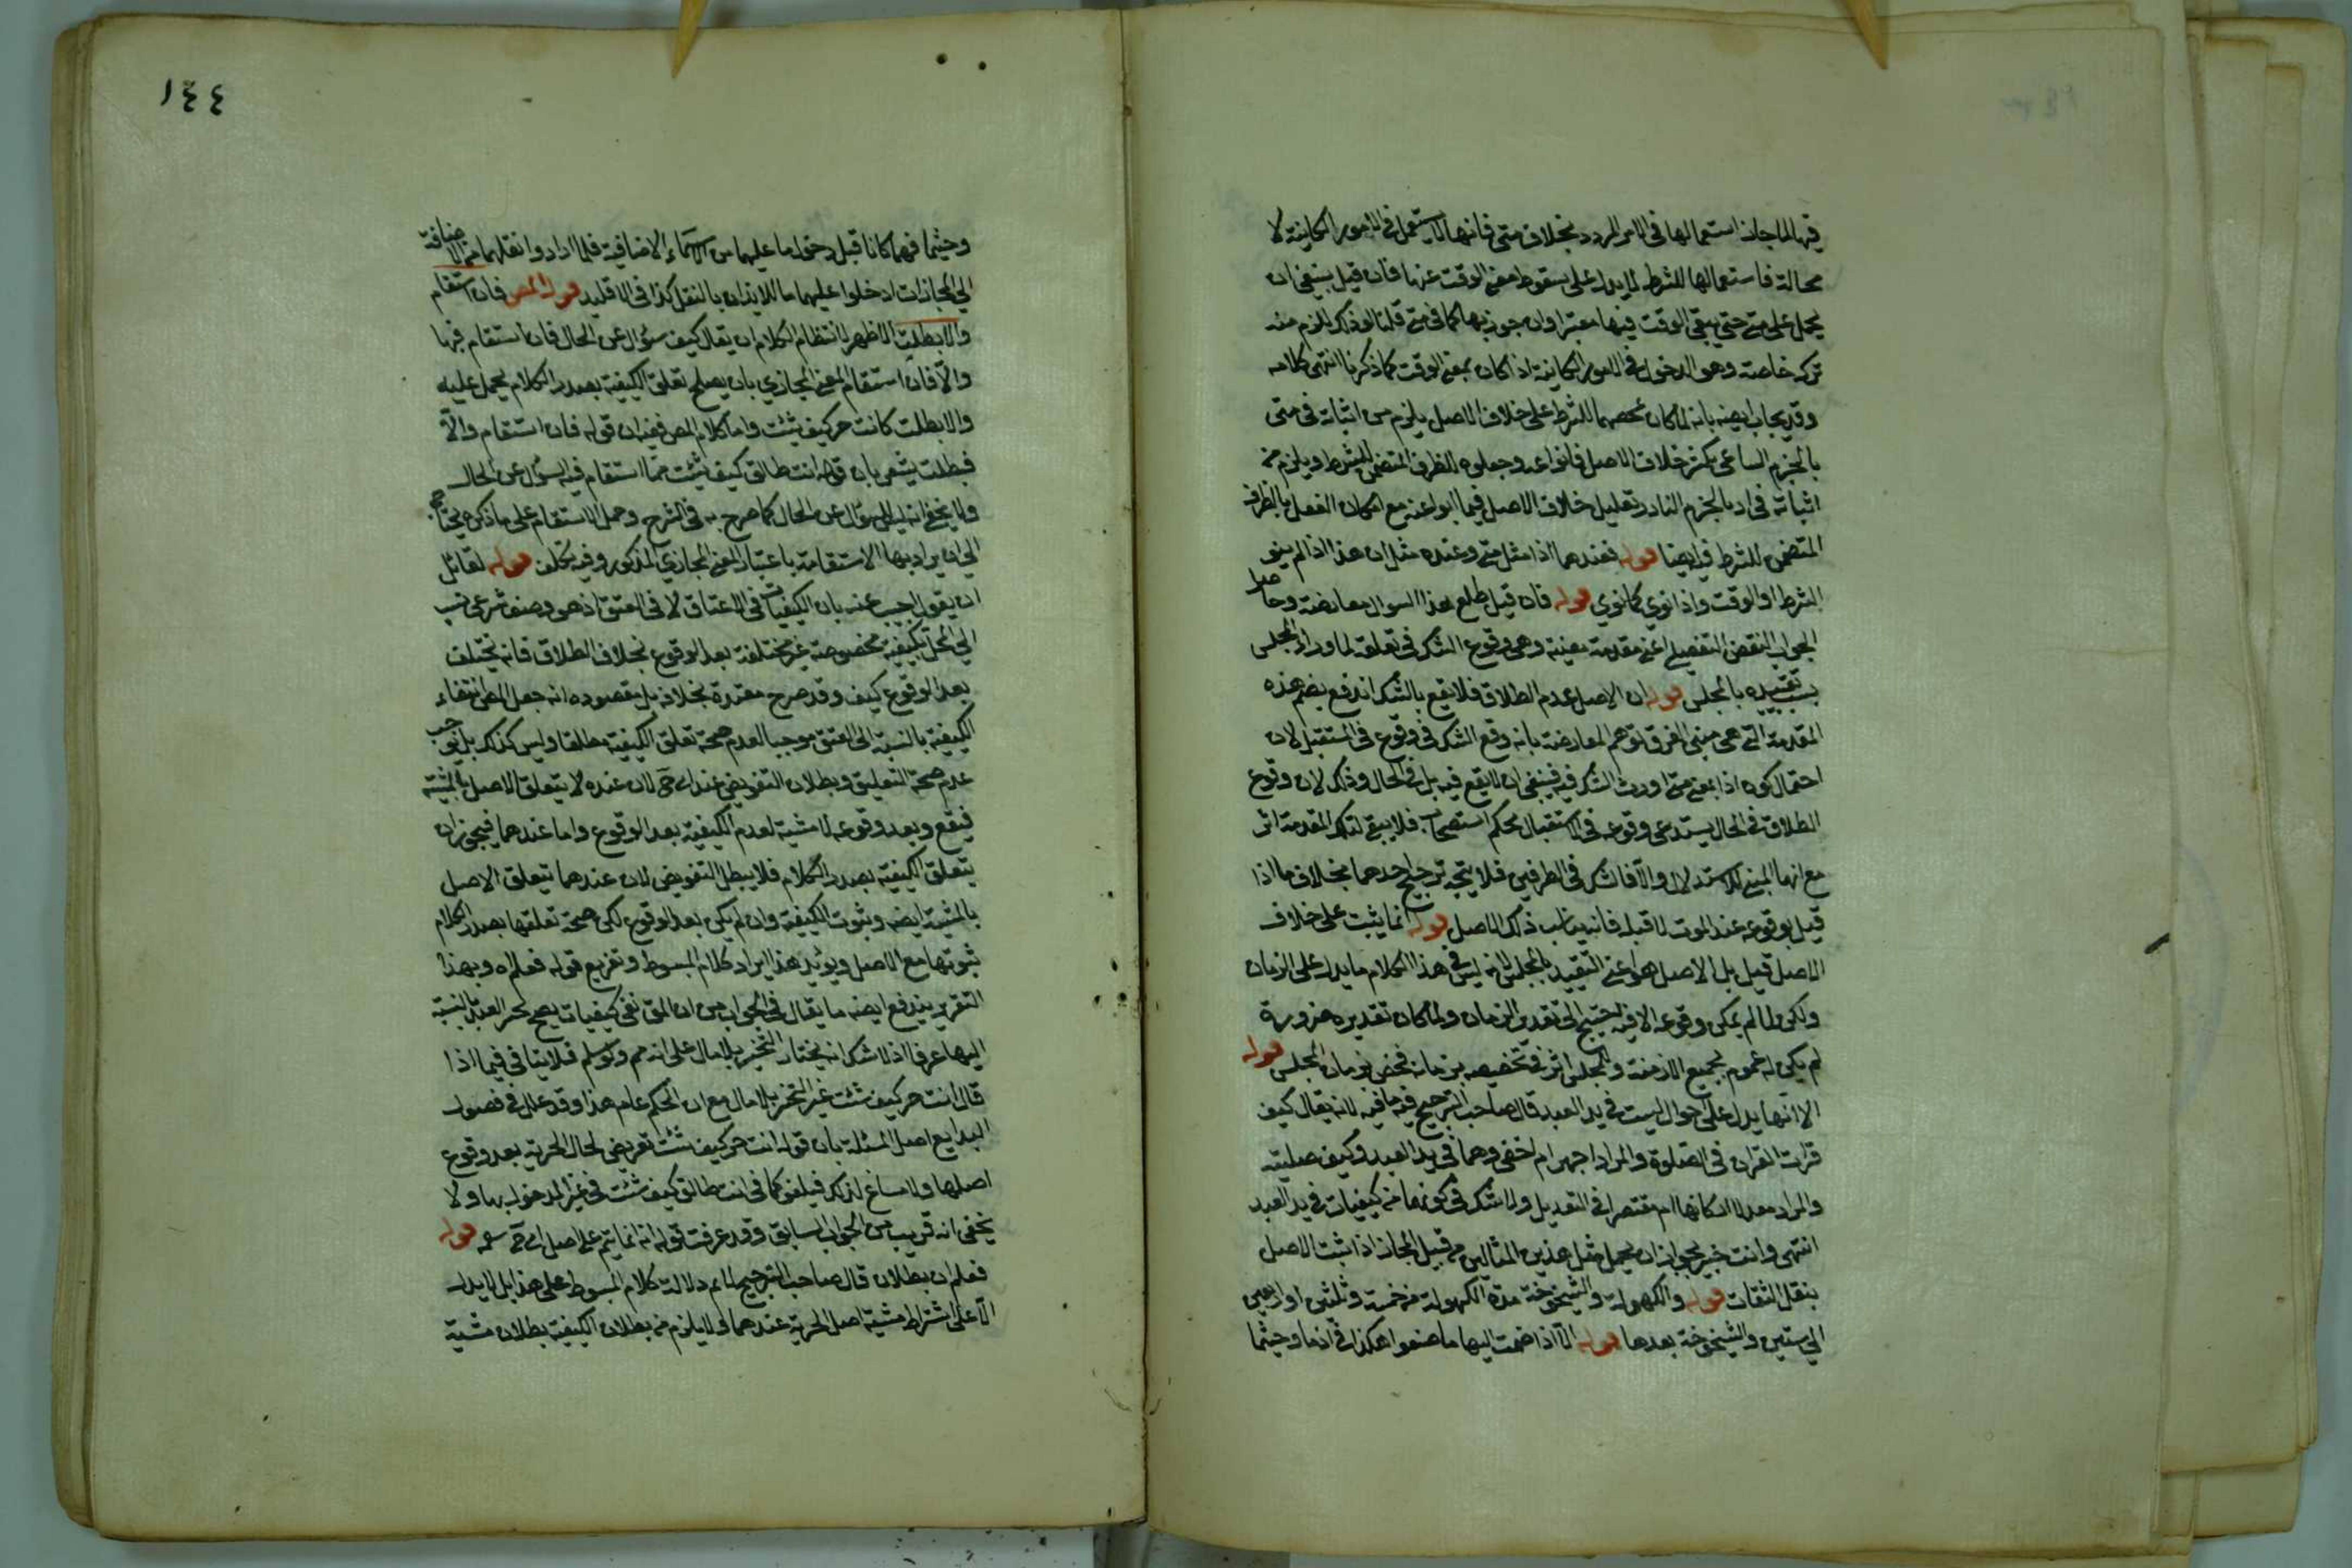 فيها لما جاز استعمالها في الامر المردد بخلاف متى فانها لا تستعمل في الامور الكاينة لا
محالة فاستعمالها للشرط لا يدل على سقوط معنى الوقت عنها فان قيل ينبغي ان
يحمل على متى حتى يبقى الوقت فيها معتبرا وان جوزي بها كما في متى قلنا لو ذلك لزم منه
ترك خاصته وهو الدخول في الامور الكاينة اذا كان بمعنى الوقت كما ذكرنا انتهى كلامه
وقد يجاب ايضه بانه لما كان للشرط على خلاف الاصل يلزم من اثباته في متى
بالجزم الساعي بكثر خلاف الاصل فلنواعد وجعلوه للظرف المتضمن للشرط ويلزم من
اثباته في اذ بالجزم النادر تعليل خلاف الاصل فيما ابوا عنه مع امكان الفصل بالظرفية
المتضمن للشرط فيه ايضا قوله فعندهما اذا مثل متى وعنده مثل ان هذا اذا لم ينو
الشرط او الوقت واذا نوى كما نوى قوله فان قيل طلع هذا السوال معارضة وحاصل
الجواب النقض التفصيلي اعني مقدمة معينة وهي وقوع الشك في تعلقه لما وراء المجلس
بسبب تقييده بالمجلس قوله ان الاصل عدم الطلاق فلا يقع بالشك اندفع بضم هذه
المقدمة التي هي مبنى الفرق توهم المعارضة بانه وقع الشك في وقوع في المستقبل لان
احتمال كون اذا بمعنى متى اورث الشك فيه فينبغي ان لا يقع فيه بل في الحال وذلك لان وقوع
الطلاق في الحال يستدعي وقوعه في الاستقبال بحكم استصحاب فلا يبقى لتلك المقدمة اثر
مع انها المبنى للاستدلال والا فالشك في الطرفين فلا يتجه ترجيح احدهما بخلاف ما اذا
قيل بوقوعه عند الموت لا قبله فانه يناسب ذلك الاصل قوله انما يثبت على خلاف
الاصل قيل بل الاصل هو اعني التقييد بالمجلس لانه ليس في هذا الكلام ما يدل على الزمان
ولكن لما لم يمكن وقوعه الا فيه احتيج الى تقدير الزمان ولما كان تقديره ضرورة
لم يكن له عموم لجميع الازمنة وللمجلس اثر في تخصيصه بزمانه فخص بزمان المجلس قوله
الا انها يدل على احوال ليست في يد العبد قال صاحب الترجيح فيه ما فيه لانه يقال كيف
قرات القران في الصلوة والمراد اجهر ام اخفى وهما في يد العبد وكيف صليته
والمراد معدلا اركانها ام مقتصرا في التعديل ولا شك في كونهما من كيفيات في يد العبد
انتهى وانت خبير بجواز ان يحمل مثل هذين المثالين من قبيل المجاز اذا ثبت الاصل
بنقل الثقات قوله والكهولة والشيخوخة مدة الكهولة من خمسة وثلثين او اربعين
الى ستين والشيخوخة بعدها قوله الا اذا ضمت اليها ما صنعوا هكذا في اذما وحيثما
١٤٤
وحيثما فهما كانا قبل دخول ما عليهما من الاسماء الاضافية فلما ارادوا نقلهما من الاضافة
الى المجازات ادخلوا عليهما ما للايذان بالنقل كذا في الاقليد قوله المص فان استقام
والا بطلت الاظهر لانتظام الكلام ان يقال كيف سؤال عن الحال فان استقام فبها
والا فان استقام المعنى المجازي بان يصلح تعلق الكيفية بصدر الكلام يحمل عليه
والا بطلت كانت حر كيف شئت واما كلام المص ففيه ان قوله فان استقام والا
فبطلت يشعر بان قوله انت طالق كيف شئت مما استقام فيه السؤال عن الحال
ولا يخفى انه ليس للسؤال عن الحال كما صرح به في الشرح وحمل الاستقام على ما ذكره يحتاج
الى ان يراد بها الاستقامة باعتبار المعنى المجازي المذكور وفيه تكلف قوله لقائل
ان يقول اجيب عنه بان الكيفيات في الاعتاق لا في العتق اذ هو وصف شرعي نسب
الى المحل بكيفية مخصوصة غير مختلفة بعد الوقوع بخلاف الطلاق فانه يختلف
بعد الوقوع كيف وقد صرح معتدة بخلافه بل مقصوده انه جعل المص انتفاء
الكيفية بالنسبة الى العتق موجبا لعدم صحة تعلق الكيفية مطلقا وليس كذلك بل توجب
عدم صحة التعليق وبطلان التفويض عند ابي ح لان عنده لا يتعلق الاصل بالمشية
فيقع وبعد وقوعه لا مشية لعدم الكيفية بعد الوقوع واما عندهما فيجوز ان
يتعلق الكيفية بصدر الكلام فلا يبطل التفويض لان عندهما يتعلق الاصل
بالمشية ايضه وثبوت الكيفية وان لم يكن بعد الوقوع لكن صحة تعلقها بصدر الكلام
ثبوتها مع الاصل ويؤيد هذا الايراد كلام المبسوط وتفريع قوله فعلم اه وبهذا
التقرير يندفع ايضه ما يقال في الجواب من ان المق نفى كيفيات يصح لحر العبد بالنسبة
اليها عرفا اذ لا شك انه يختار التخيير بلا مال على انه مم ولو سلم فلا ينافي فيما اذا
قال انت حر كيف شئت غير التخير بلا مال مع ان الحكم عام هذا وقد علل في فصول
البدايع اصل المسئلة بان قوله انت حر كيف شئت تعريض لحال الحرية بعد وقوع
اصلها ولا مساغ لذلك فيلغو كما في انت طالق كيف شئت في غير المدخول بها ولا
يخفى انه قريب من الجواب السابق وقد عرفت قوله انه انما يتم على اصل ابي ح قوله
فعلم ان بطلان قال صاحب الترجيح لا تم دلالة كلام المبسوط على هذا بل لا يدل
الا على اشتراط مشية اصل الحرية عندهما ولا يلزم من بطلان الكيفية بطلان مشية